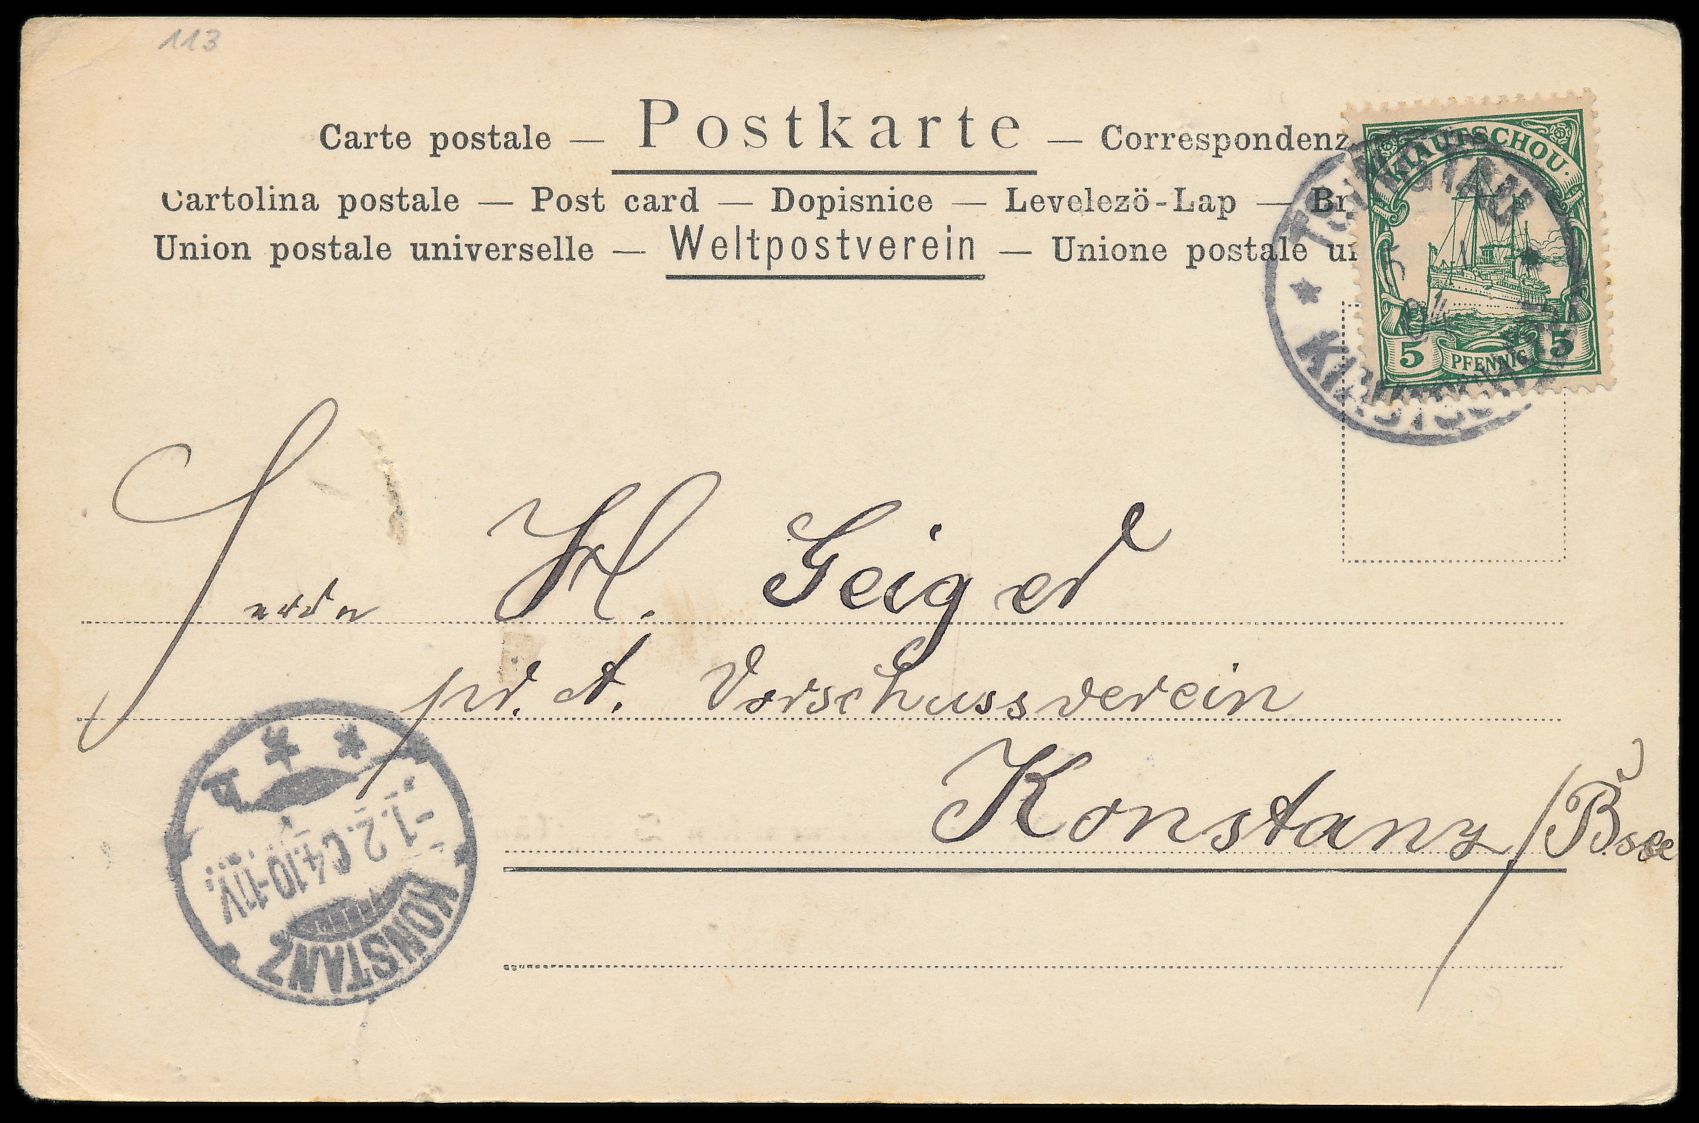 113
Carte postale — Postkarte — Correspondenz
Cartolina postale — Post card — Dopisnice — Levelezö-Lap — Br
Union postale universelle — Weltpostverein — Unione postale u
KIAUTSCHOU.
5 PFENNIG 5
TSINGTAU
KIAUTSCHOU
Herrn H. Geiger
pr. A. Vorschussverein
Konstanz / B.see
-1.2.04.10-11V.
KONSTANZ